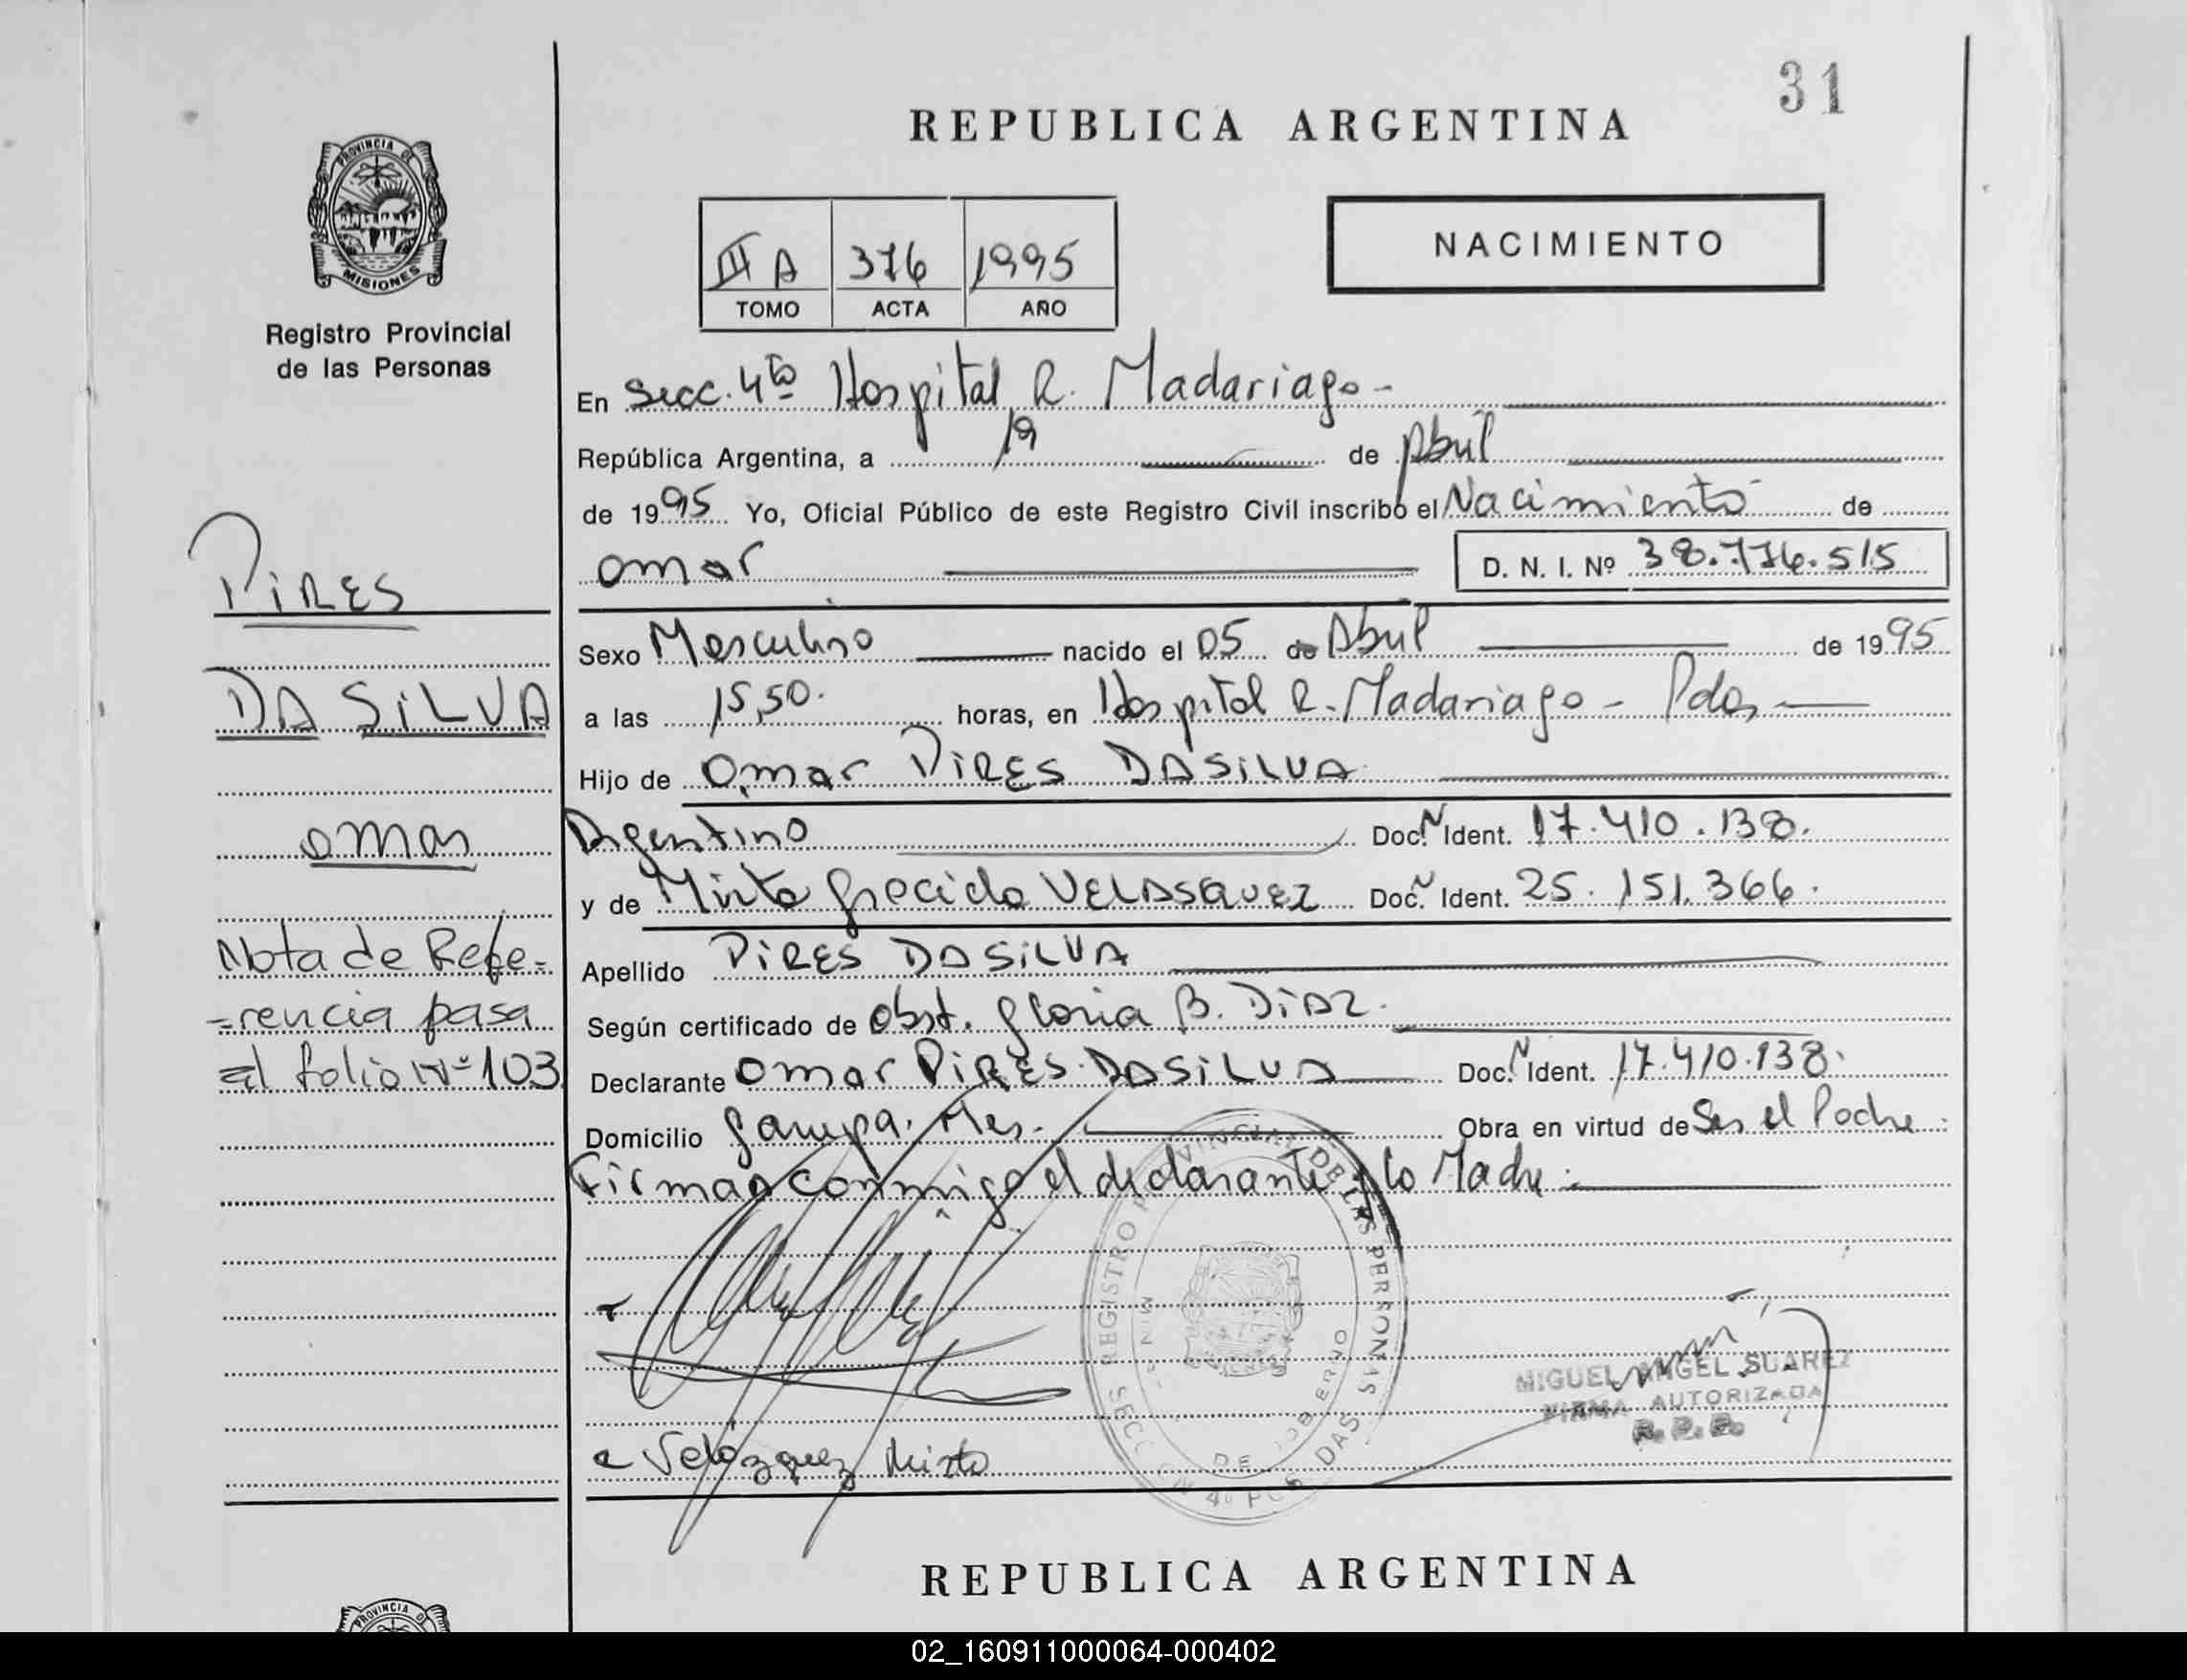 31
REPUBLICA ARGENTINA
PROVINCIA DE
MISIONES
Registro Provincial
de las Personas
III A 376 1995
TOMO ACTA AÑO
NACIMIENTO
En Secc. 4ta Hospital R. Madariaga -
República Argentina, a 19 de Abril
de 1995 Yo, Oficial Público de este Registro Civil inscribo el Nacimiento de
Omar D. N. I. Nº 38.776.515
Sexo Masculino nacido el 05 de Abril de 1995
a las 15,50. horas, en Hospital R. Madariaga - Pdas
Hijo de Omar PIRES DA SILVA
Argentino Doc. Ident. 17.410.138.
y de Mirta Grecida VELASQUEZ Doc. Ident. 25.151.366.
Apellido PIRES DA SILVA
Según certificado de Obst. Gloria B. DIAZ.
Declarante Omar PIRES DA SILVA Doc. Ident. 17.410.138.
Domicilio Garupa. Mes. Obra en virtud de Ser el Padre.
Firman conmigo el declarante y la Madre.
PIRES
DA SILVA
Omar
Nota de Refe=
=rencia pasa
al folio Nº 103
REGISTRO PROVINCIAL DE LAS PERSONAS
MIGUEL ANGEL SUAREZ
FIRMA AUTORIZADA
R. P. P.
Velázquez Mirta
REPUBLICA ARGENTINA
PROVINCIA DE
02_160911000064-000402